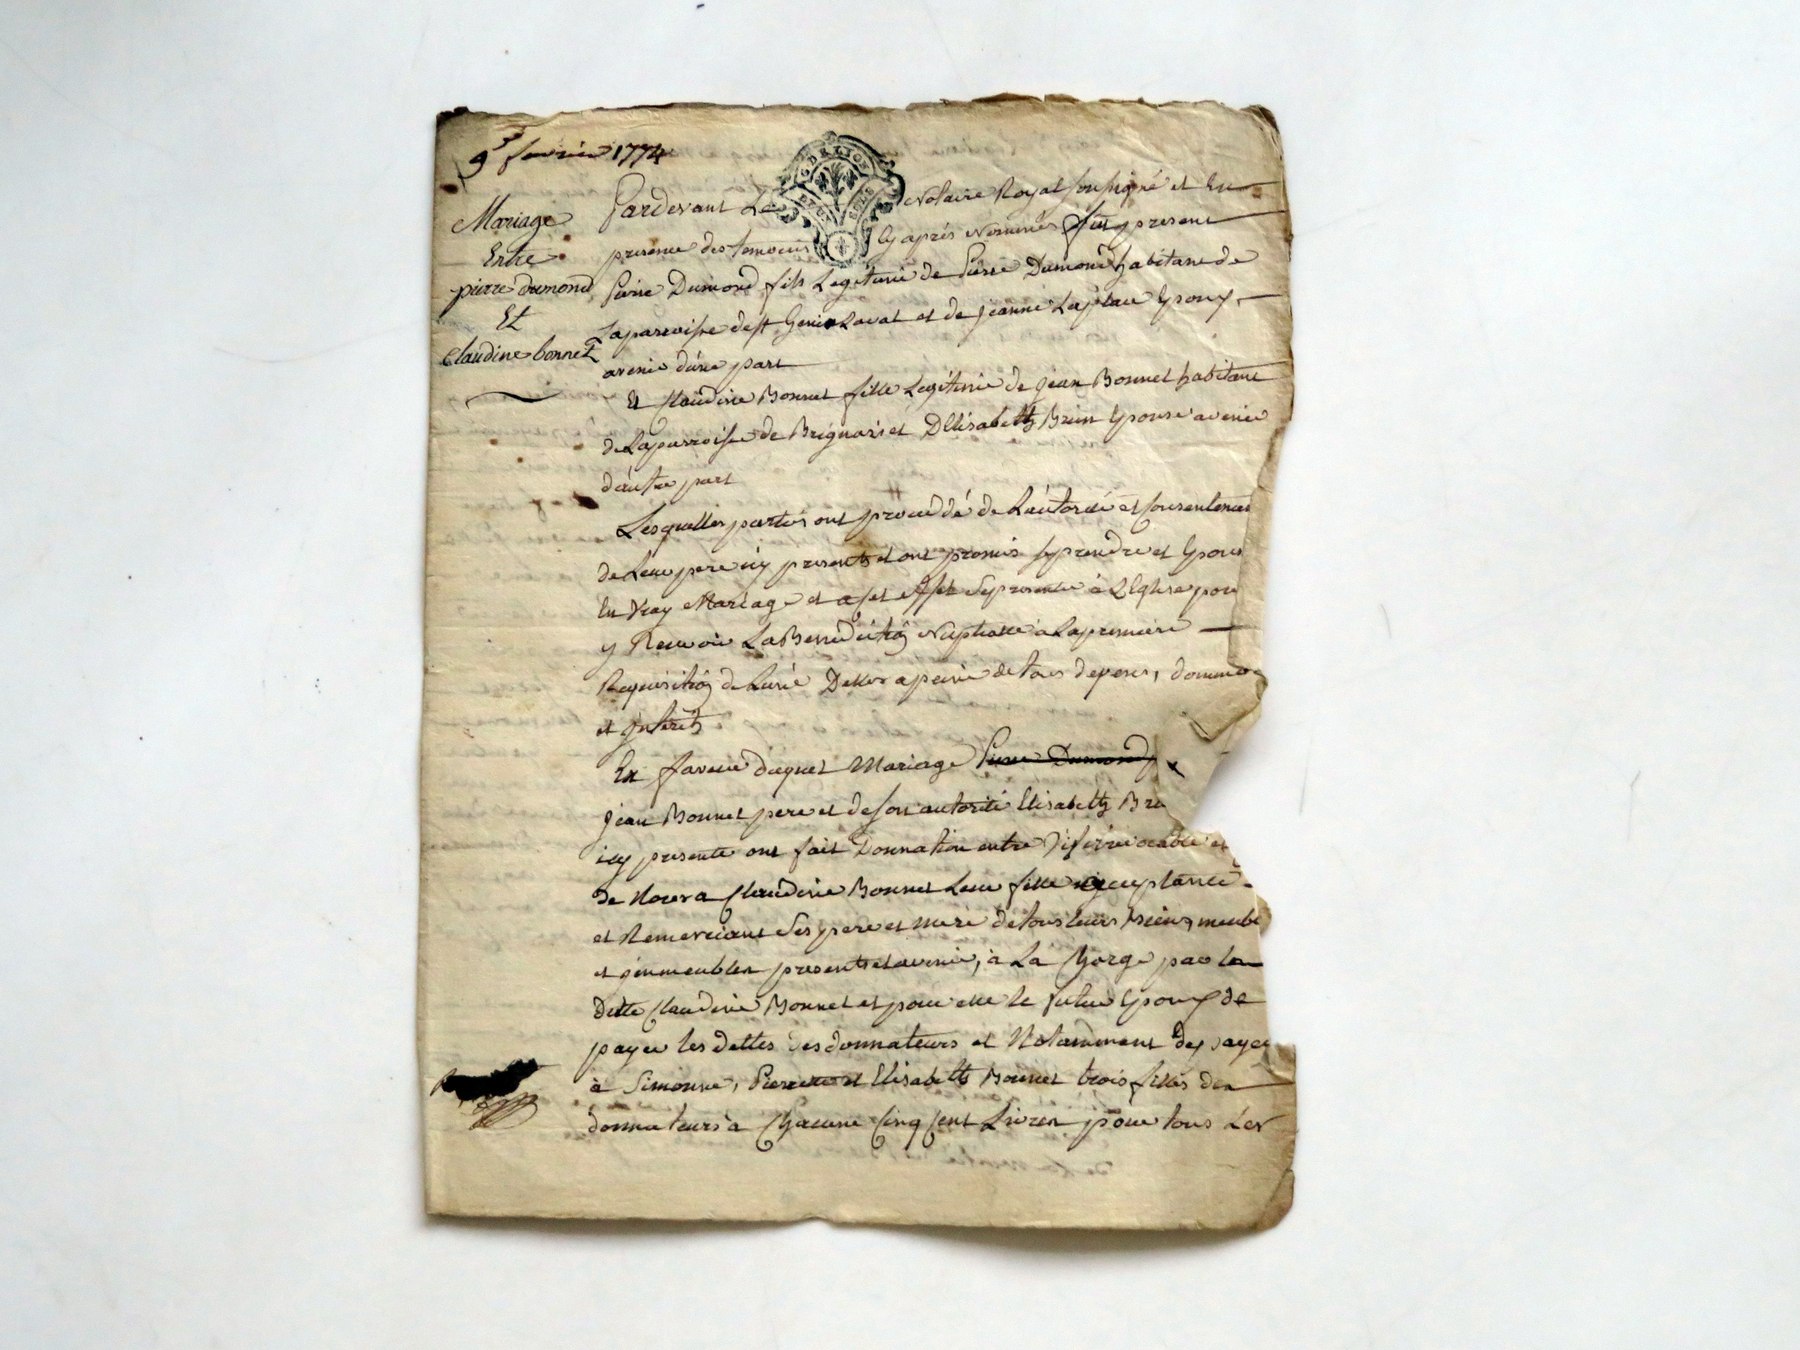 9 fevrier 1774
Mariage
Entre
pierre dumond
Et
Claudine bonnet
G. DE LYON
Pardevant Le Notaire Royal soussigné et En
presence des temoins cy après Nommés fut present
Pierre Dumond fils Legitime de Pierre Dumond habitant de
Laparroisse de st Genis Laval et de jeanne Laplace Epoux
avenir d'une part
Et Claudine Bonnet fille Legitime de jean Bonnet habitant
de Laparroisse de Brignais et D'Elisabeth Brun Epouse avenir
d'autre part
Lesquelles parties ont procedé de L'autorité et Consentement
de Leur pere icy presents et ont promis se prendre et Epous
En Vray Mariage et a cet effet se presenter à L'Eglise pour
y Recevoir La Benediction Nuptialle a La premiere
Requisition de Lune D'elles a peine de tous depens, domma
et interets
En faveur duquel Mariage Pierre Dumond
jean Bonnet pere et de son autorité Elisabeth Bru
icy presente ont fait Donnation entre vifs irrevocable et
de Nouveau a Claudine Bonnet Leur fille acceptante
et Remerciant ses pere et mere de tous leurs biens, meubl
et immeubles presents et avenir, à La Charge par la
ditte Claudine Bonnet et pour elle le futur Epoux de
payer les dettes des donnateurs et Notamment de payer
à Simonne, Pierrette et Elisabeth Bonnet trois filles des
donnateurs a Chacune Cinq Cent Livres pour tous Les